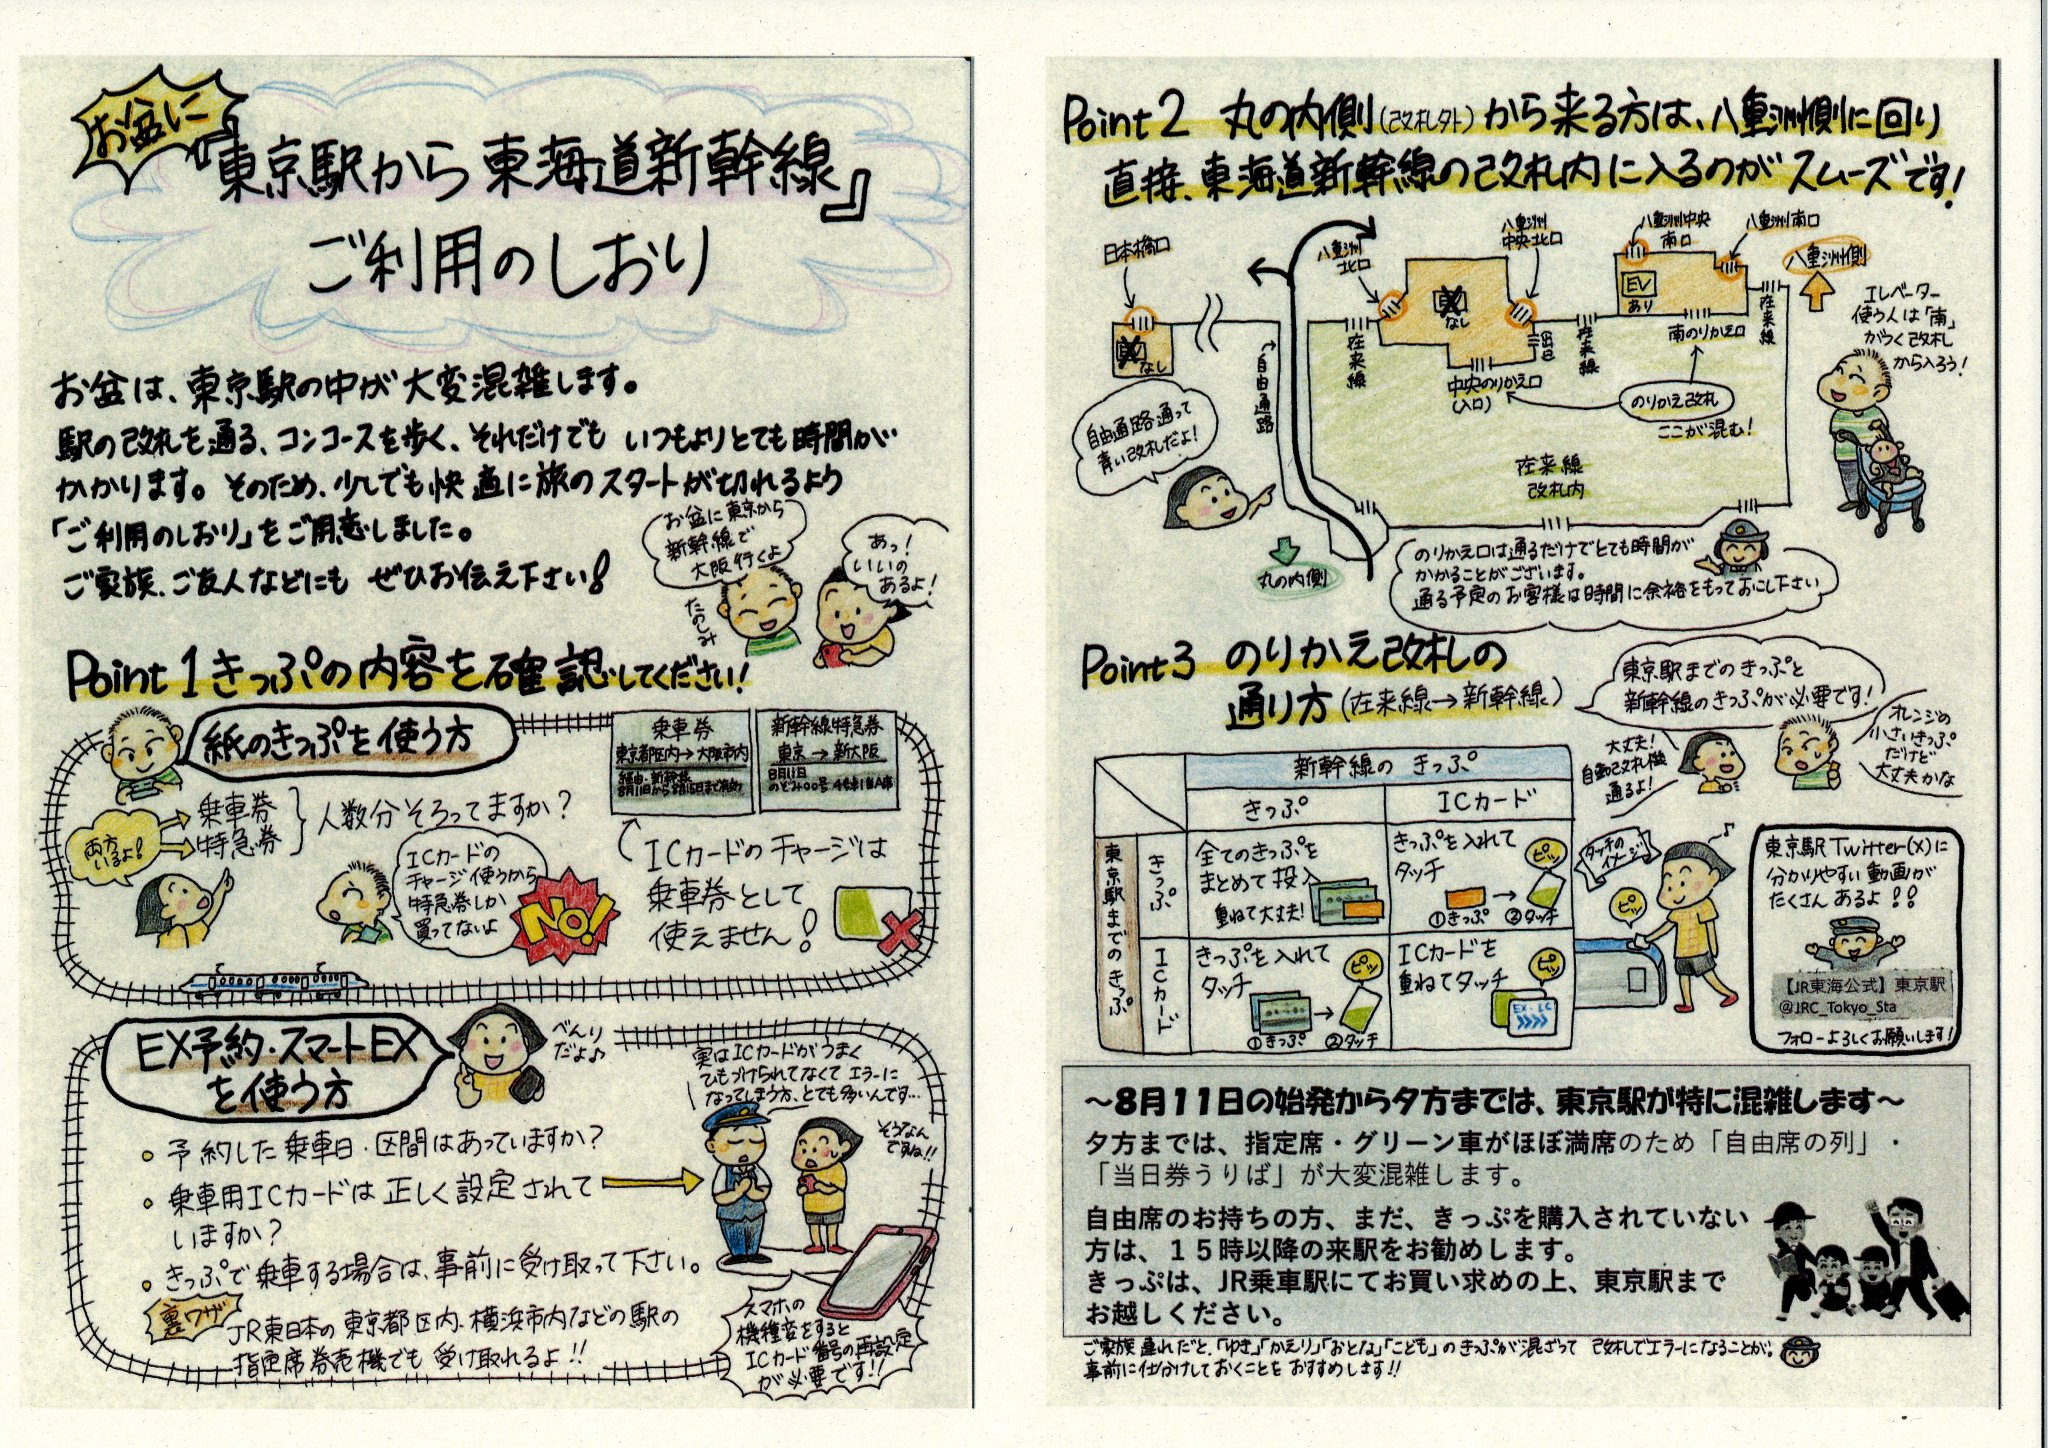 お盆に
『東京駅から東海道新幹線』
ご利用のしおり
お盆は、東京駅の中が大変混雑します。
駅の改札を通る、コンコースを歩く、それだけでも いつもよりとても時間が
かかります。そのため、少しでも快適に旅のスタートが切れるよう
「ご利用のしおり」をご用意しました。
ご家族、ご友人などにも ぜひお伝え下さい!
お盆に東京から
新幹線で
大阪行くよ
たのしみ
あっ!
いいの
あるよ!
Point 1 きっぷの内容を確認してください!
紙のきっぷを使う方
乗車券
特急券
人数分そろってますか?
両方
いるよ!
ICカードの
チャージ使うから
特急券しか
買ってないよ
NO!
乗車券
東京都区内→大阪市内
経由:新幹線
8月11日から8月15日まで有効
新幹線特急券
東京 → 新大阪
8月11日
のぞみ○○号 4号車1番A席
ICカードのチャージは
乗車券として
使えません!
EX予約・スマートEX
を使う方
べんり
だよ♪
・予約した乗車日・区間はあっていますか?
・乗車用ICカードは正しく設定されて
いますか?
・きっぷで乗車する場合は、事前に受け取って下さい。
裏ワザ
JR東日本の東京都区内、横浜市内などの駅の
指定席券売機でも受け取れるよ!!
実はICカードがうまく
ひもづけられてなくてエラーに
なってしまう方、とても多いんです…
そうなん
ですね!!
スマホの
機種変をすると
ICカード番号の再設定
が必要です!!
Point 2 丸の内側(改札外)から来る方は、八重洲側に回り
直接、東海道新幹線の改札内に入るのがスムーズです!
日本橋口
八重洲
北口
八重洲
中央北口
八重洲中央
南口
八重洲南口
八重洲側
EV
なし
EV
なし
EV
あり
在来線
出口
在来線
在来線
南のりかえ口
中央のりかえ口
(入口)
のりかえ改札
ここが混む!
自由通路
在来線
改札内
エレベーター
使う人は「南」
がつく改札
から入ろう!
自由通路通って
青い改札だよ!
丸の内側
のりかえ口は通るだけでとても時間が
かかることがございます。
通る予定のお客様は時間に余裕をもっておこし下さい
Point 3 のりかえ改札の
通り方(在来線→新幹線)
東京駅までのきっぷと
新幹線のきっぷが必要です!
オレンジの
小さいきっぷ
だけど
大丈夫かな
大丈夫!
自動改札機
通るよ!
新幹線の きっぷ
きっぷ
ICカード
東京駅までのきっぷ
きっぷ
全てのきっぷを
まとめて投入
重ねて大丈夫!
きっぷを入れて
タッチ
ピッ
①きっぷ ②タッチ
ICカード
きっぷを入れて
タッチ
ピッ
①きっぷ ②タッチ
ICカードを
重ねてタッチ
ピッ
EX-IC
タッチの
イメージ
ピッ
東京駅Twitter(X)に
分かりやすい動画が
たくさんあるよ!!
【JR東海公式】東京駅
@JRC_Tokyo_Sta
フォローよろしくお願いします!
～8月11日の始発から夕方までは、東京駅が特に混雑します～
夕方までは、指定席・グリーン車がほぼ満席のため「自由席の列」・
「当日券うりば」が大変混雑します。
自由席のお持ちの方、まだ、きっぷを購入されていない
方は、15時以降の来駅をお勧めします。
きっぷは、JR乗車駅にてお買い求めの上、東京駅まで
お越しください。
ご家族連れだと、「ゆき」「かえり」「おとな」「こども」のきっぷが混ざって 改札でエラーになることが。
事前に仕分けしておくことをおすすめします!!